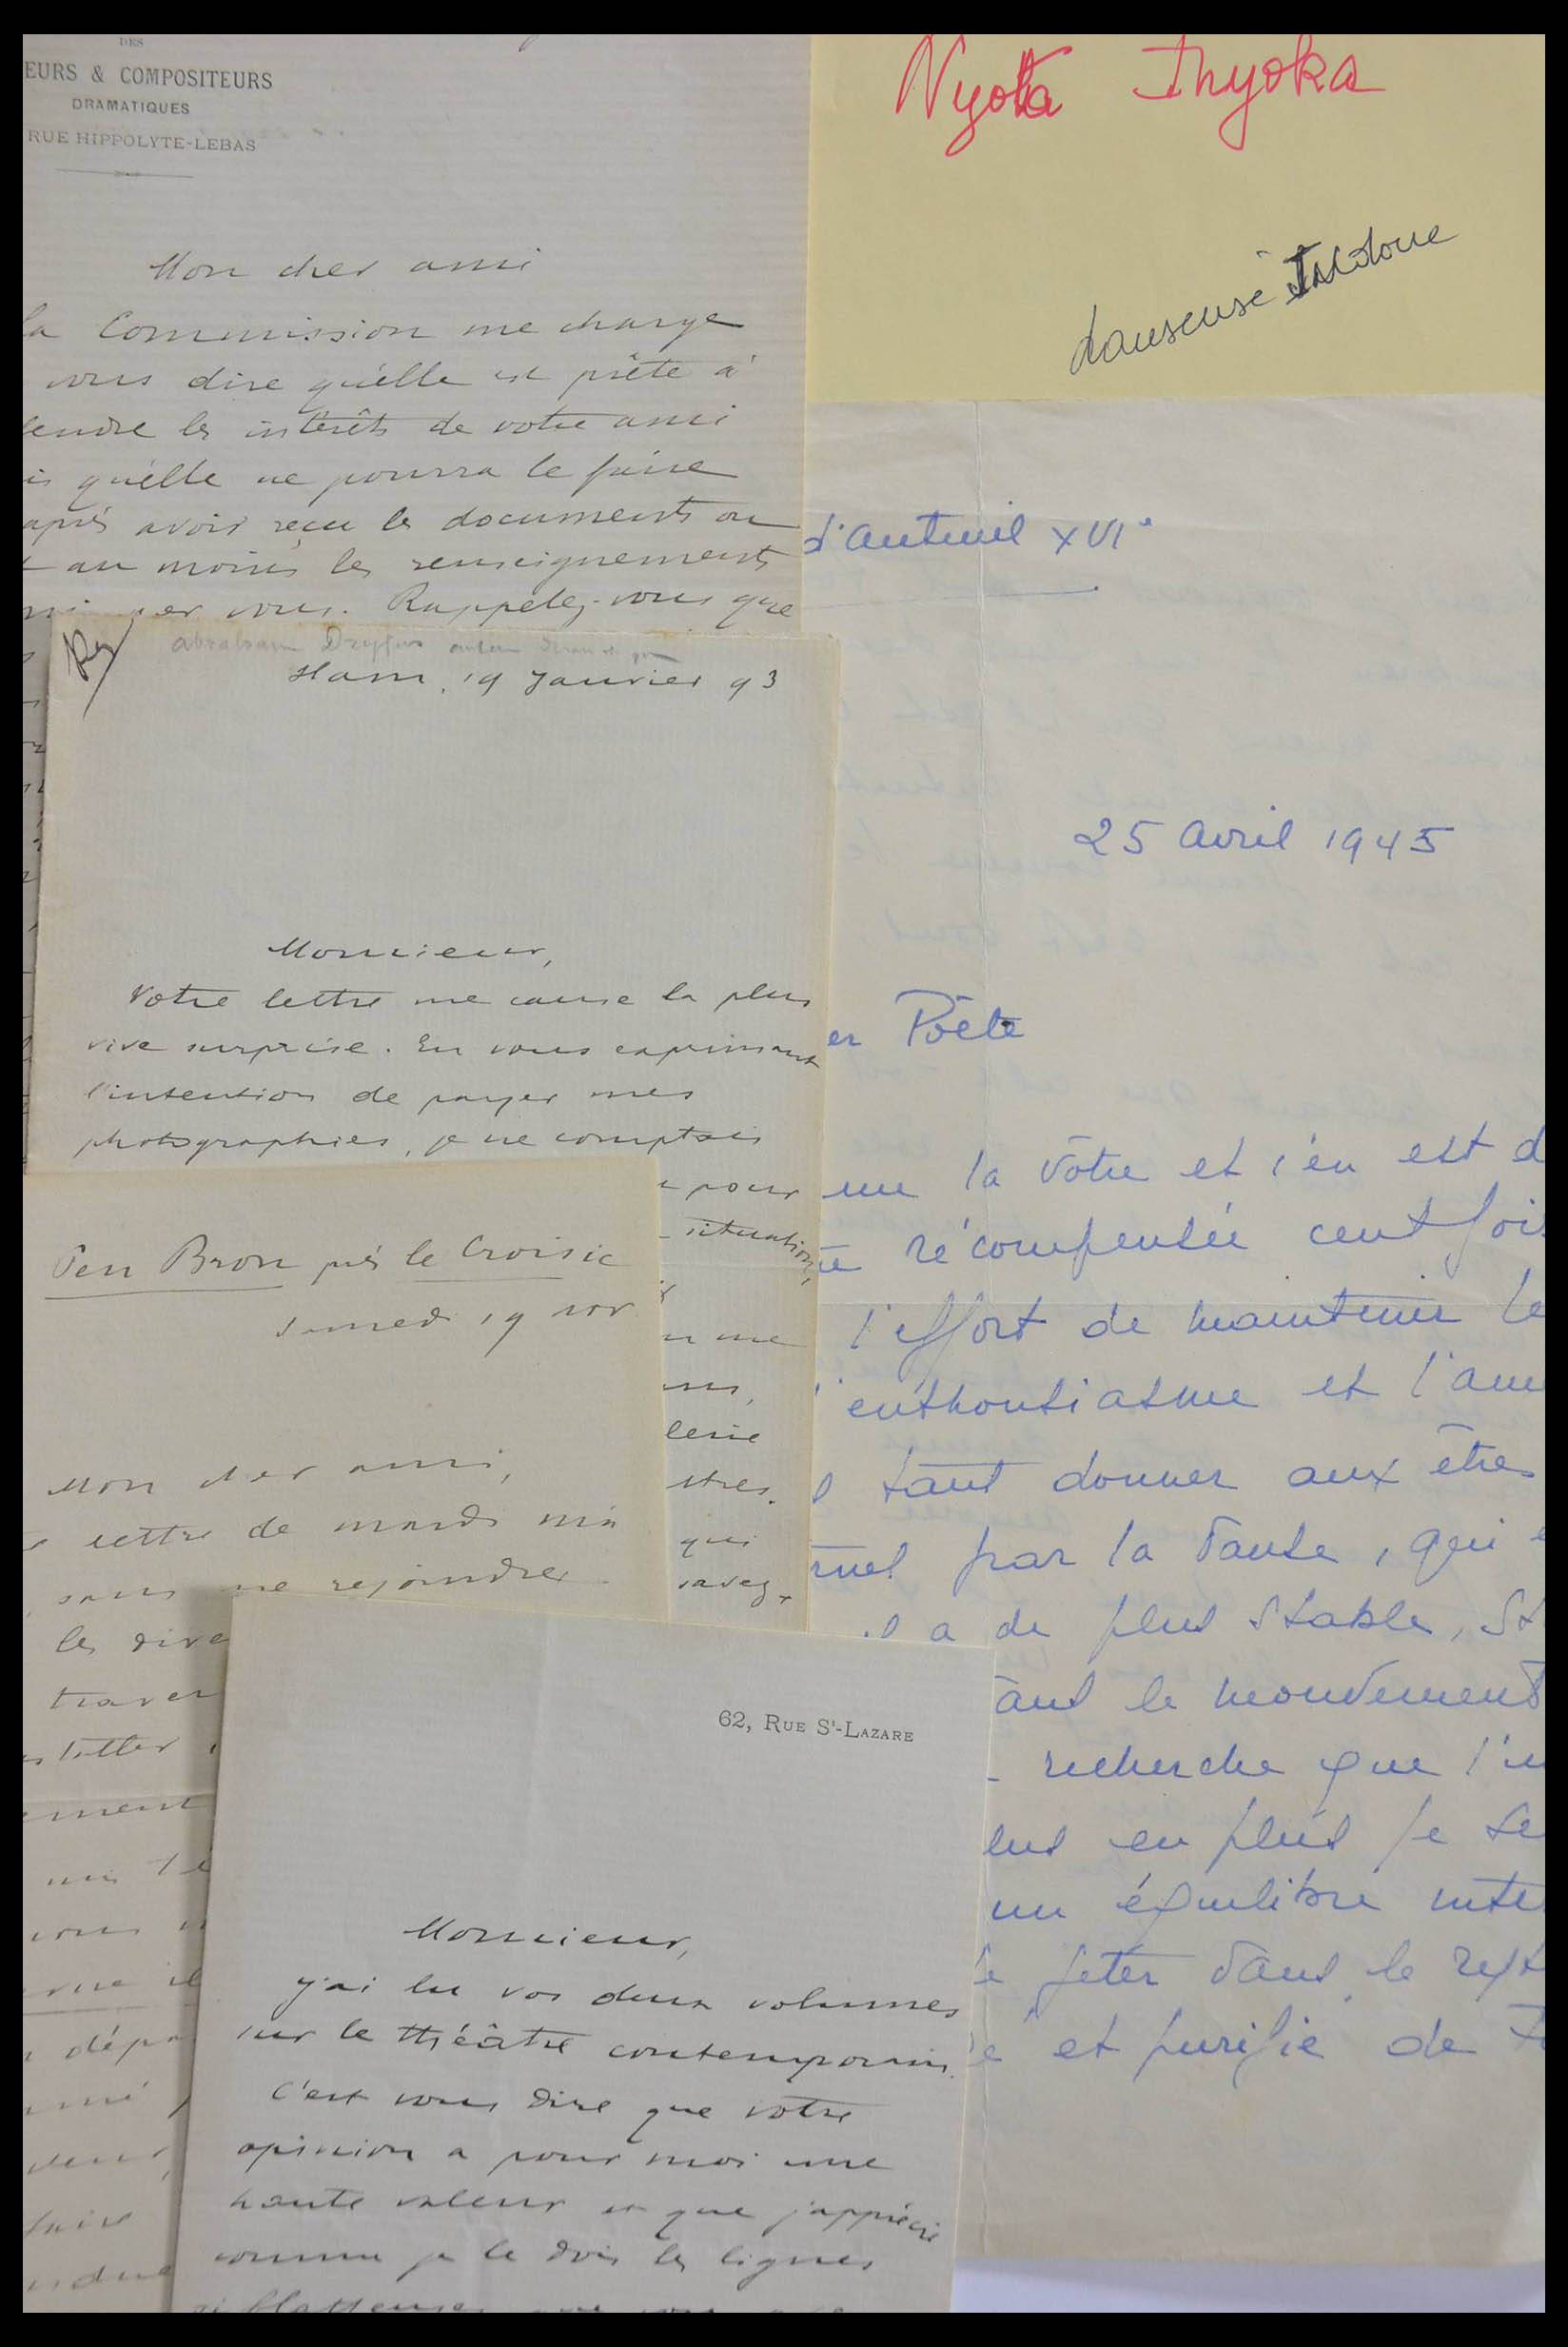 DES
EURS & COMPOSITEURS
DRAMATIQUES
RUE HIPPOLYTE-LEBAS
Mon cher ami
la Commission me charge
vous dire qu'elle est prête à
endre les intérêts de votre ami
is qu'elle ne pourra le faire
après avoir reçu les documents ou
au moins les renseignements
vous. Rappelez-vous que
Abraham Dreyfus auteur
Ham, 19 Janvier 93
Monsieur,
Votre lettre me cause la plus
vive surprise. En vous exprimant
l'intention de payer mes
photographies, je ne comptais
pour
situation,
me
lerie
stres.
qui
savez-
Pen Bron près le Croisic
Samedi 19 nov
Mon cher ami,
lettre de mardi m'a
sans me rejoindre
les dive
traver
ment
vous
dépa
faire
62, RUE St-LAZARE
Monsieur,
J'ai lu vos deux volumes
sur le théâtre contemporain.
C'est vous dire que votre
opinion a pour moi une
haute valeur et que j'apprécie
comme je le dois les lignes
si flatteuses que vous
Nyota Inyoka
danseuse Indoue
d'Auteuil XVIe
25 Avril 1945
er Poète
une la vôtre et s'en est d
récompensée cent fois
l'effort de maintenir le
enthousiasme et l'am
tant donner aux êtres
rnel par la danse, qui e
a de plus stable, St
ans le mouvement
recherche que l'in
lus en plus je se
un équilibre inte
jeter dans le
et purifie de